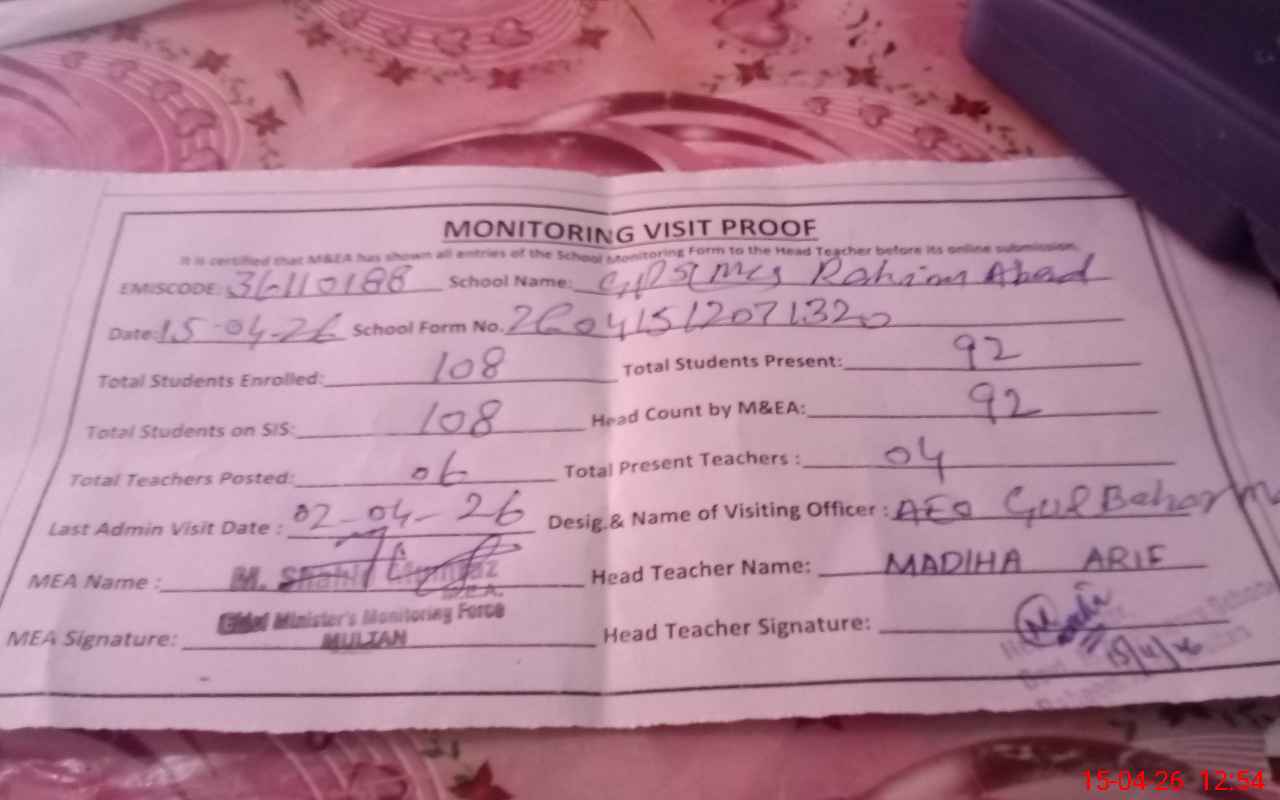 MONITORING VISIT PROOF
It is certified that M&EA has shown all entries of the School Monitoring Form to the Head Teacher before its online submission.
EMISCODE: 36110188 School Name: Rahim Abad
Date: 15-04-26 School Form No. 26041512071320
Total Students Enrolled: 108 Total Students Present: 92
Total Students on SIS: 108 Head Count by M&EA: 92
Total Teachers Posted: 06 Total Present Teachers : 04
Last Admin Visit Date : 02-04-26 Desig.& Name of Visiting Officer : AEO Gul
MEA Name : M. Shahid Head Teacher Name: MADIHA ARIF
M.E.A.
Chief Minister's Monitoring Force
MULTAN
MEA Signature: Head Teacher Signature:
15/4/26
15-04-26 12:54